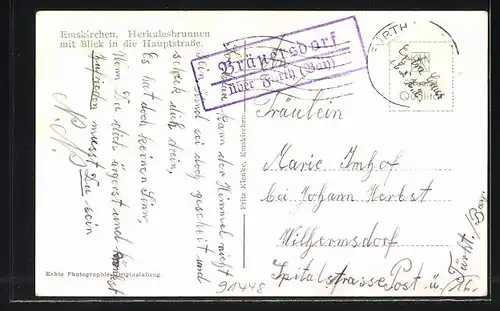 Emskirchen, Herkulesbrunnen
mit Blick in die Hauptstraße.
Bräuersdorf
über Fürth (Bay)
FÜRTH
Extra Gruß
Qualität
kann der Himmel nicht
sein und sei doch gescheit und
schick dich drein,
Es hat doch keinen Sinn,
Wenn Du dich ärgerst und
Zufrieden musst Du sein
Fritz Klotke, Emskirchen
Fräulein
Marie Imhof
bei Johann Herbst
Wilhermsdorf
Spitalstrasse Post ü.
Fürth i. Bay.
Echte Photographie Originalabzug.
91448